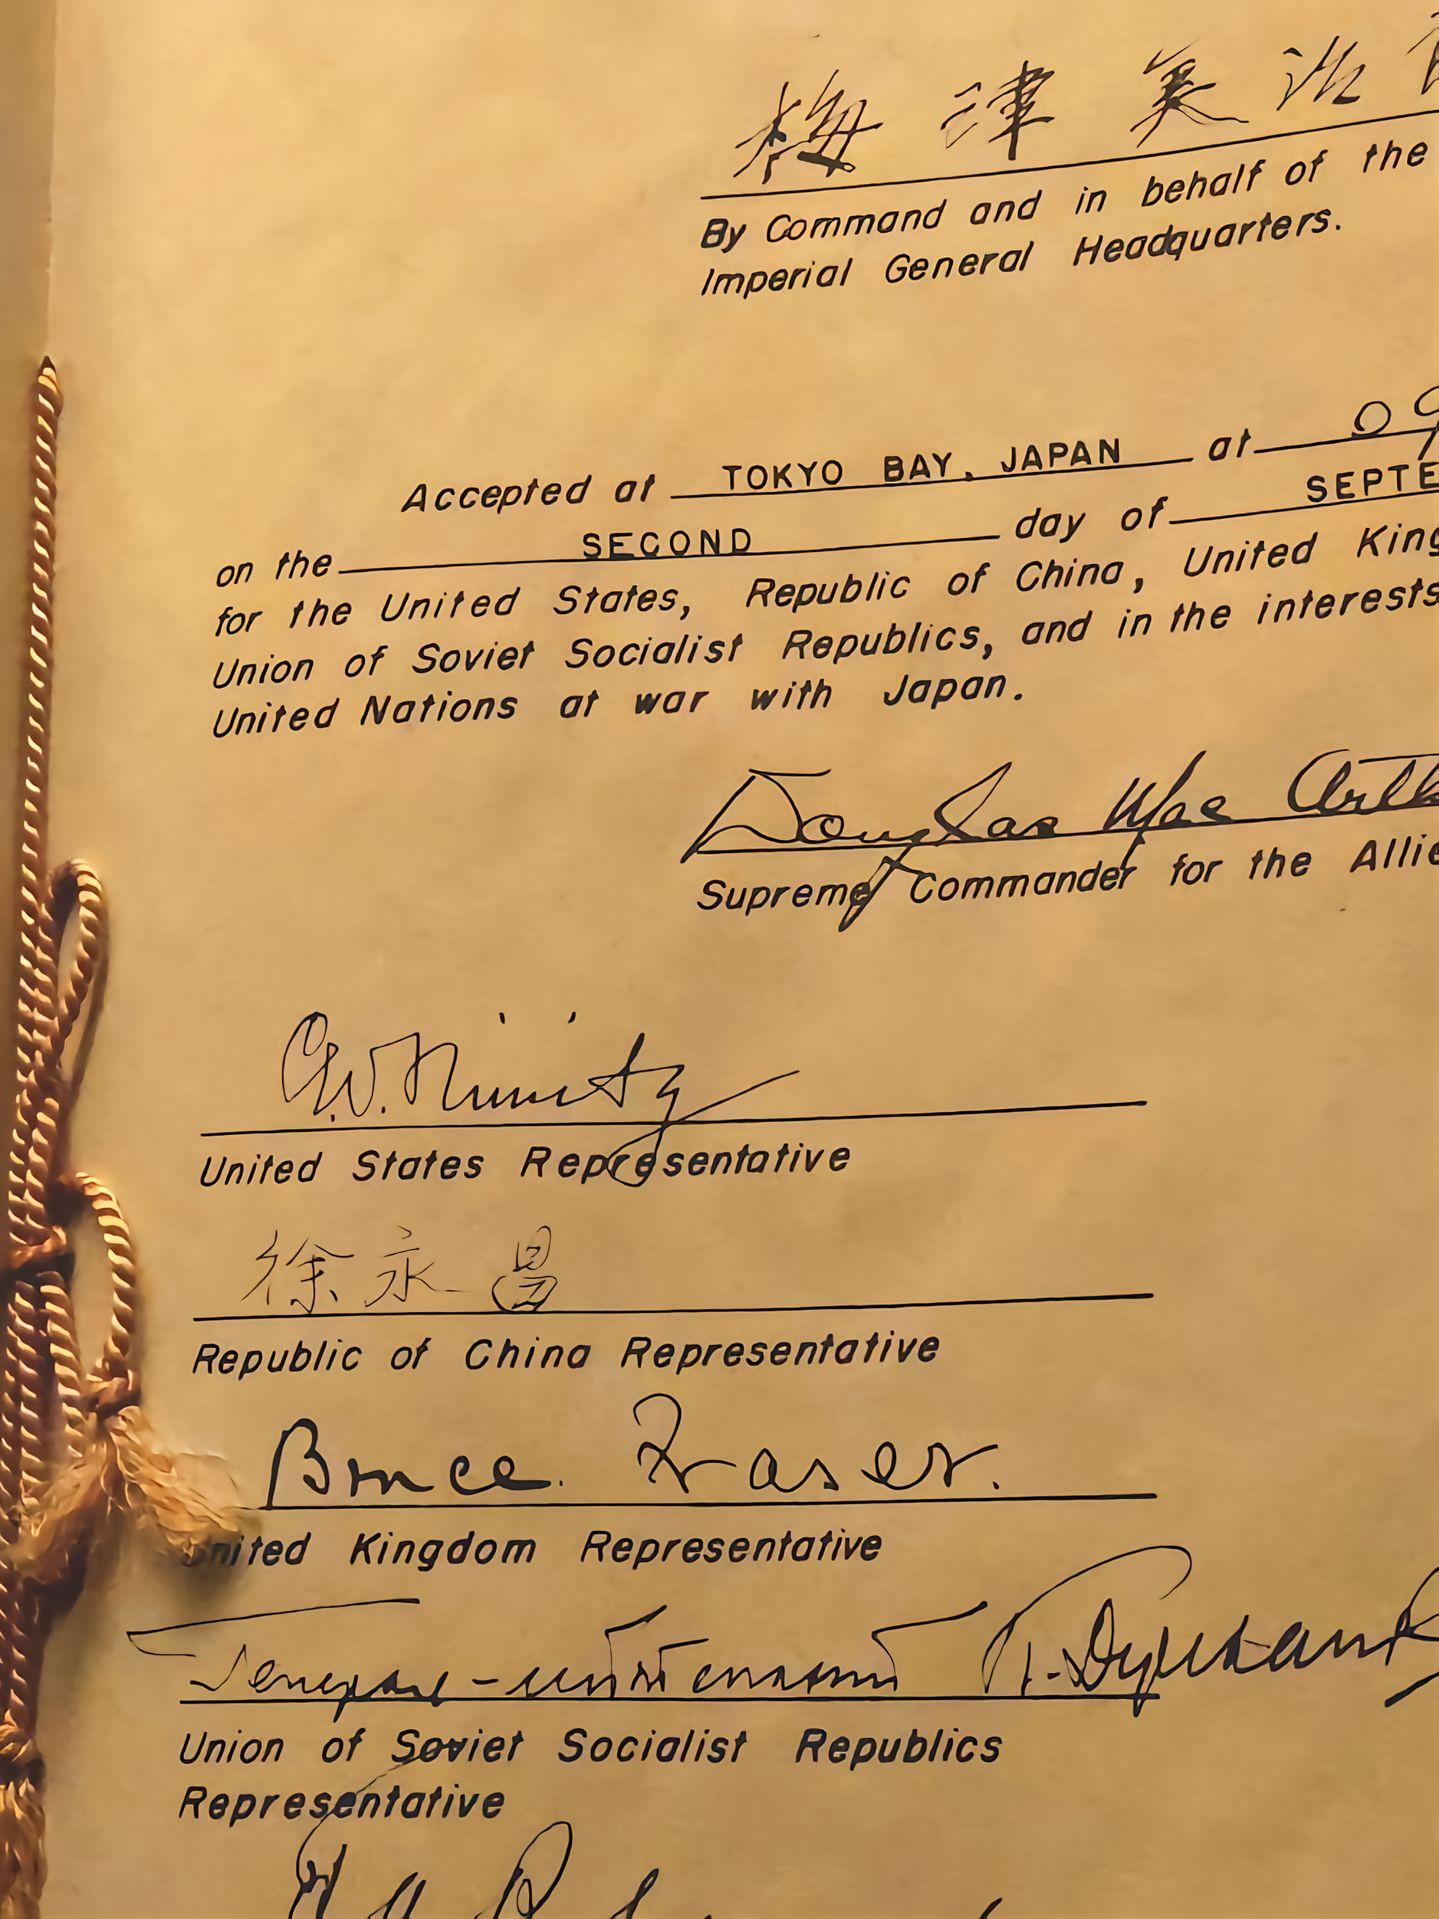 梅津美治
By Command and in behalf of the
Imperial General Headquarters.
Accepted at TOKYO BAY, JAPAN at 09
on the SECOND day of SEPTE
for the United States, Republic of China, United King
Union of Soviet Socialist Republics, and in the interests
United Nations at war with Japan.
Douglas MacArth
Supreme Commander for the Allie
C.W. Nimitz
United States Representative
徐永昌
Republic of China Representative
Bruce Fraser.
United Kingdom Representative
Генерал-лейтенант К. Деревянк
Union of Soviet Socialist Republics
Representative